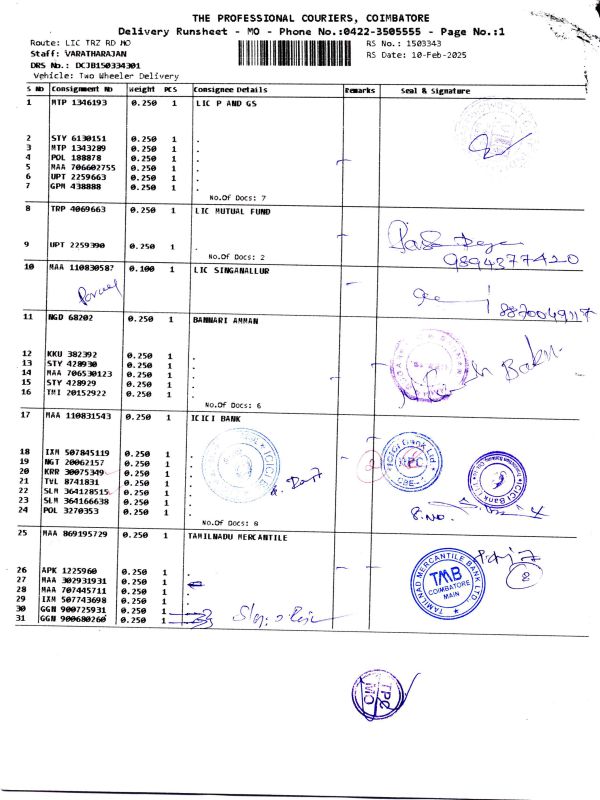 THE PROFESSIONAL COURIERS, COIMBATORE
Delivery Runsheet - MO - Phone No.:0422-3505555 - Page No.:1
Route: LIC TRZ RD MO RS No.: 1503343
Staff: VARATHARAJAN RS Date: 10-Feb-2025
DRS No.: DCJB150334301
Vehicle: Two Wheeler Delivery
S No Consignment No Weight PCS Consignee Details Remarks Seal & Signature
1 MTP 1346193 0.250 1 LIC P AND GS
2 STY 6130151 0.250 1 .
3 MTP 1343289 0.250 1 .
4 POL 188878 0.250 1 .
5 MAA 706602755 0.250 1 .
6 UPT 2259663 0.250 1 .
7 GPM 438888 0.250 1 .
No.Of Docs: 7
8 TRP 4069663 0.250 1 LIC MUTUAL FUND
9 UPT 2259390 0.250 1 .
No.Of Docs: 2
9894377420
10 MAA 110830587 0.100 1 LIC SINGANALLUR
8870049117
11 NGD 68202 0.250 1 BANNARI AMMAN
12 KKU 382392 0.250 1 .
13 STY 428930 0.250 1 .
14 MAA 706530123 0.250 1 .
15 STY 428929 0.250 1 .
16 TMI 20152922 0.250 1 .
No.Of Docs: 6
17 MAA 110831543 0.250 1 ICICI BANK
18 IXM 507845119 0.250 1 .
19 NGT 20062157 0.250 1 .
20 KRR 30075349 0.250 1 .
21 TVL 8741831 0.250 1 .
22 SLM 364128515 0.250 1 .
23 SLM 364166638 0.250 1 .
24 POL 3270353 0.250 1 .
No.Of Docs: 8
ICICI Bank Ltd
CBE
ICICI Bank Ltd
25 MAA 869195729 0.250 1 TAMILNADU MERCANTILE
26 APK 1225960 0.250 1 .
27 MAA 302931931 0.250 1
28 MAA 707445711 0.250 1 .
29 IXM 507743698 0.250 1 .
30 GGN 900725931 0.250 1
31 GGN 900680260 0.250 1
TAMILNAD MERCANTILE BANK LTD
TMB
COIMBATORE
MAIN
8
TPC
MO